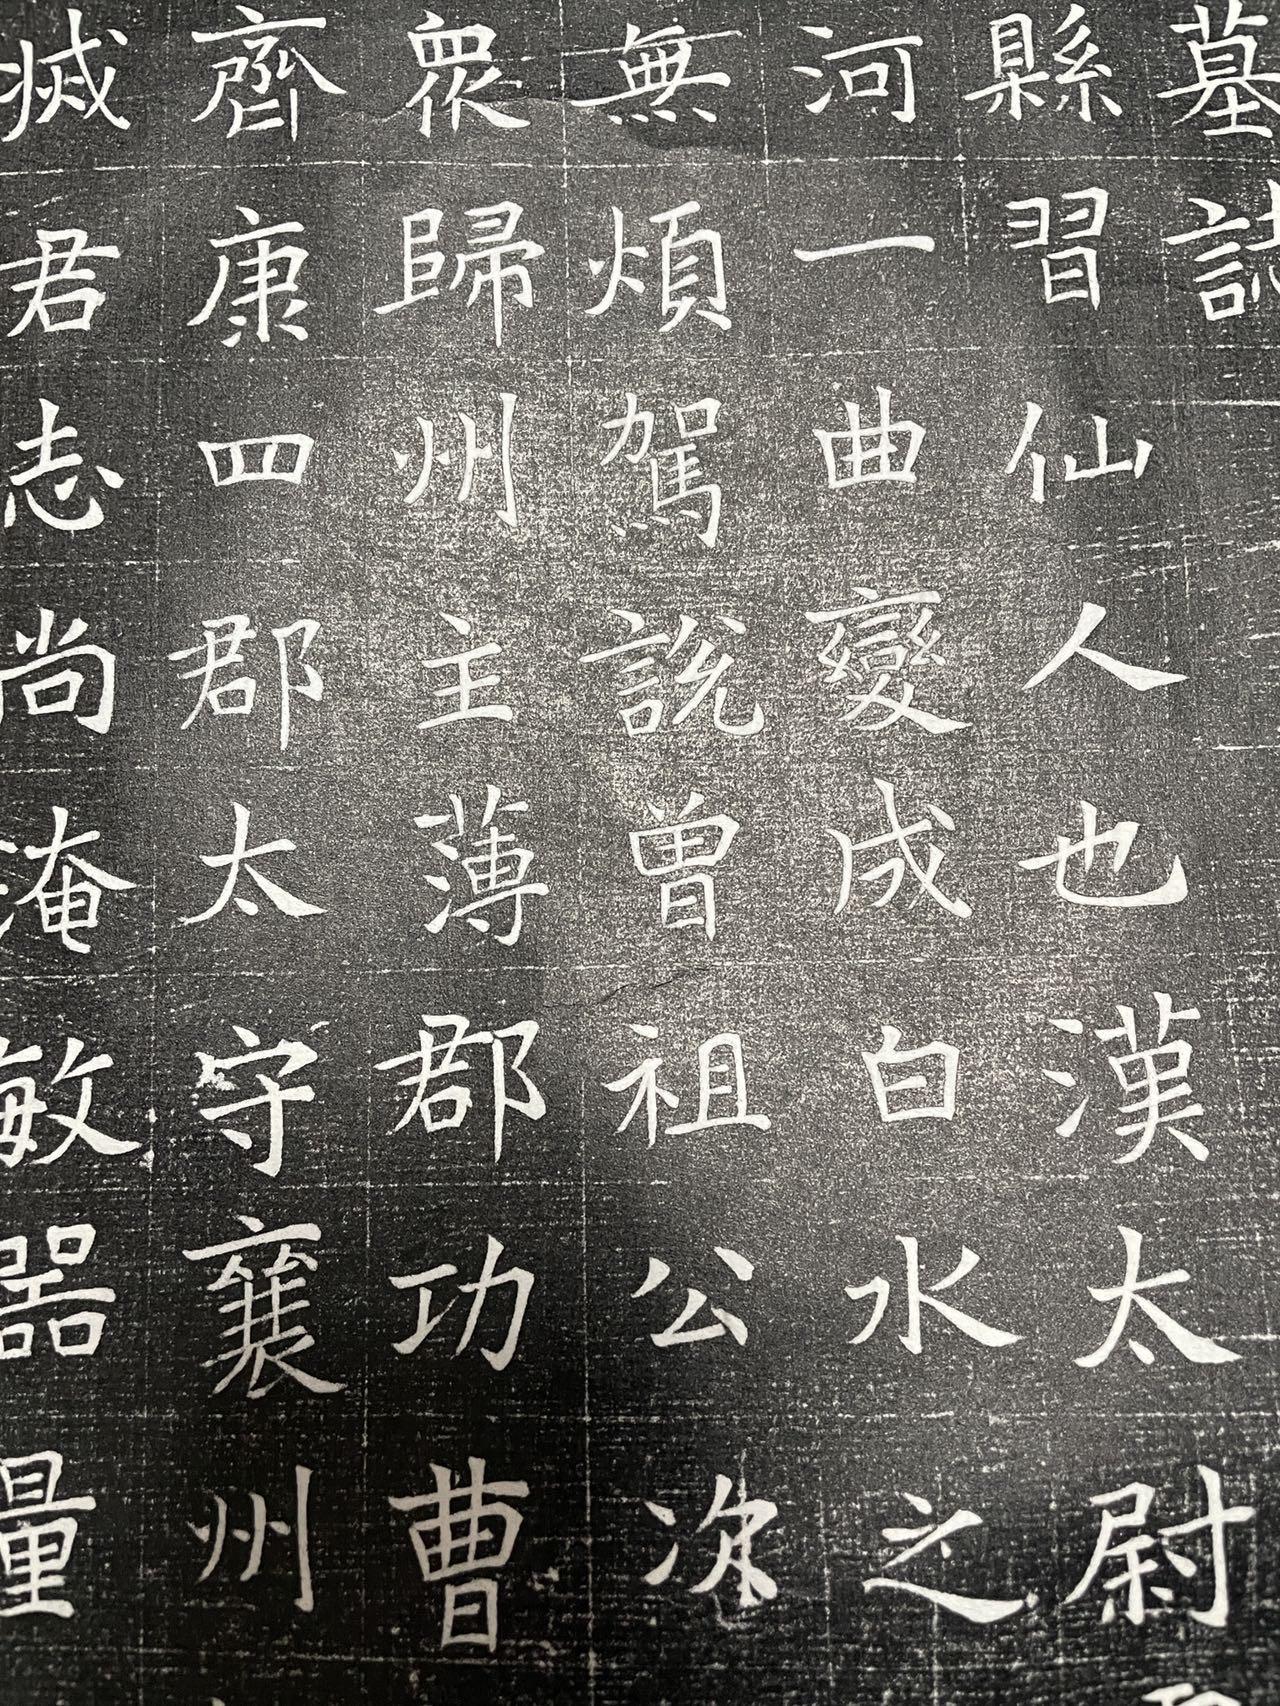 墓誌
縣習仙人也漢太尉
河一曲變成白水之
無煩駕說曾祖公
眾歸州主薄郡功曹
齊康四郡太守襄州
君志尚淹敏器量